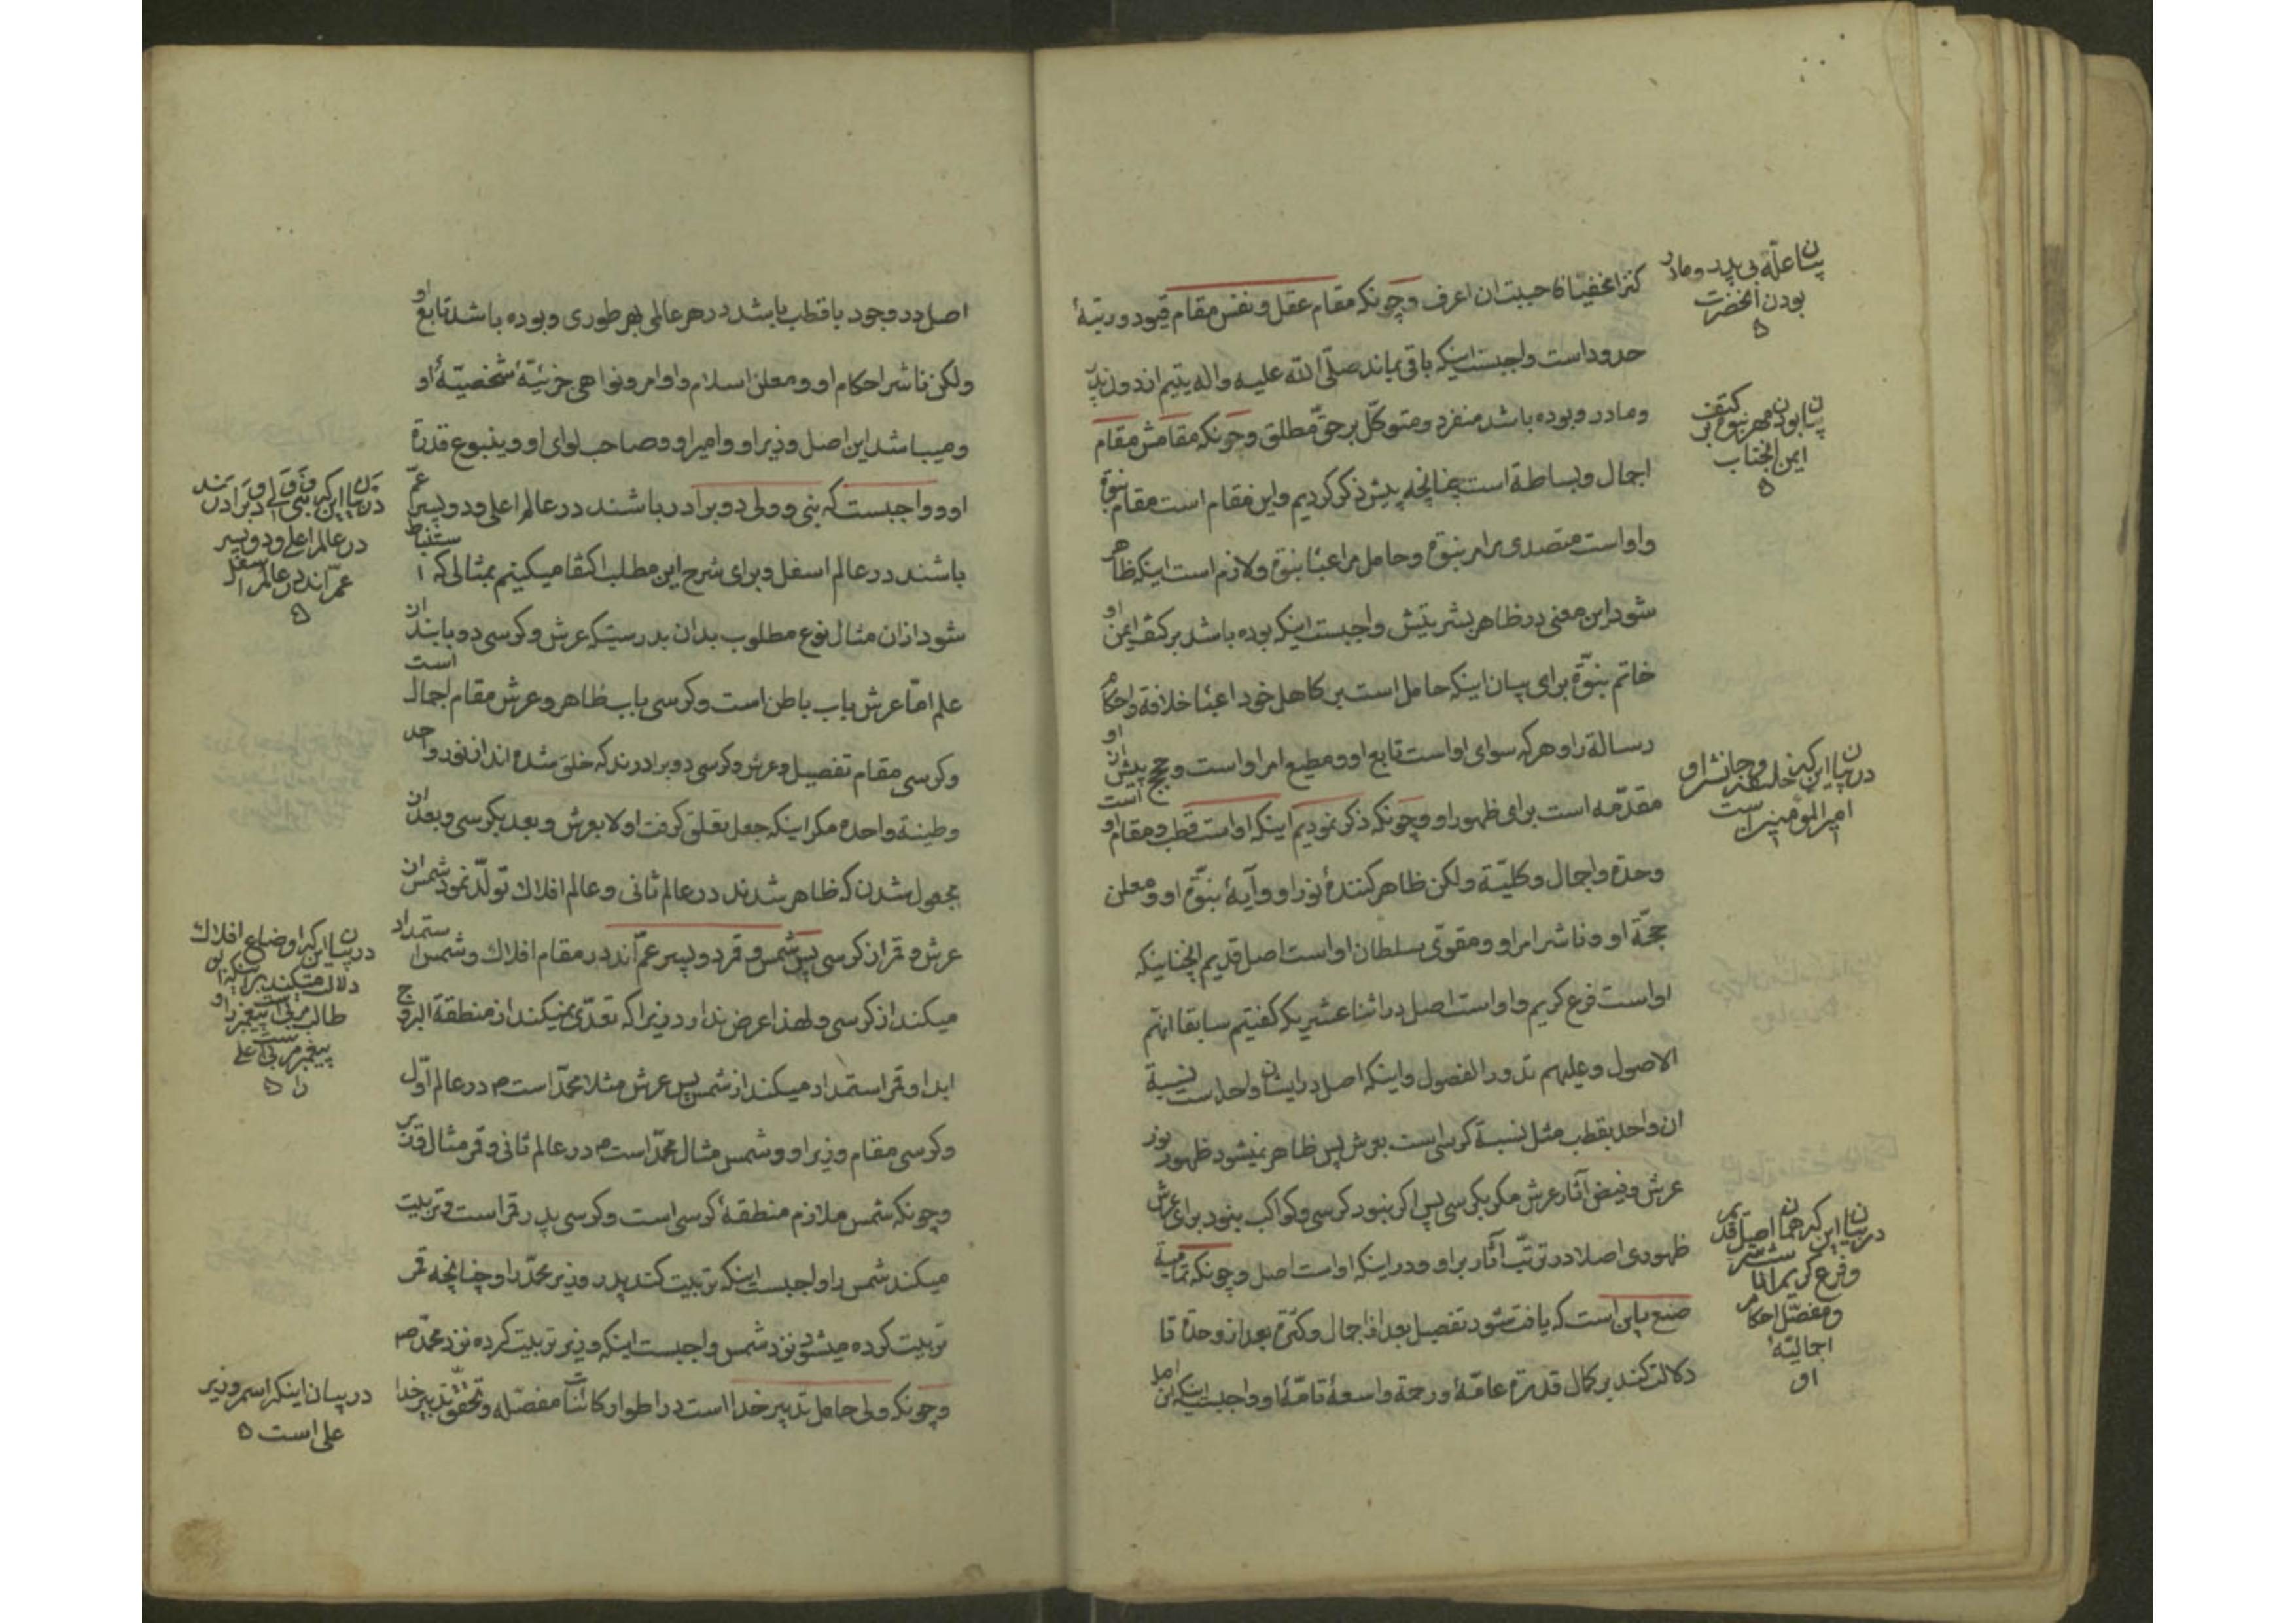 کنزا مخفیا فاحببت ان اعرف وچونکه مقام عقل و نفس مقام قیود و رتبهٔ
حدود است واجبست اینکه باقی بماند صلّی الله علیه و اله یتیم از دون پدر
و مادر و بوده باشد منفرد و متوکّل بر حقّ مطلق وچونکه مقامش مقام
اجمال و بساطة است چنانچه پیش ذکر کردیم و این مقام است مقام نبوة
و او است متصدی مر امر نبوة و حامل مر اعباء نبوة و لازم است اینکه ظاهر
شود این معنی در ظاهر بشریتش واجبست اینکه بوده باشد بر کتف ایمن او
خاتم نبوّة برای بیان اینکه حامل است بر کاهل خود اعباء خلافة و احکام
رسالة را و هر که سوای او است تابع او و مطیع امر او است و حجج پیش از او
مقدّمه است برای ظهور او وچونکه ذکر نمودیم اینکه او است قطب و مقام او است
وحدة و اجمال و کلیّة ولکن ظاهر کنندهٔ نور او و آیهٔ نبوّة او و معلن
حجّة او و ناشر امر او و مقوّی سلطان او است اصل قدیم انچنانیکه
او است فرع کریم و او است اصل در اثنا عشریکه گفتیم سابقا انهم
الاصول و علیهم تدور الفصول و اینکه اصل در ایشان واحد است نسبة
ان واحد بقطب مثل نسبة کرسی است بعرش پس ظاهر نمیشود ظهور نور
عرش و فیض آثار عرش مگر بکرسی پس اگر نبود کرسی و کواکب نبود برای عرش
ظهوری اصلا در ترتّب آثار بر او و در اینکه او است اصل وچونکه تمامیة
صنع باین است که یافت شود تفصیل بعد از اجمال و کثرة بعد از وحدة تا
دلالت کند بر کمال قدرة عامّهٔ و رحمة واسعهٔ تامّهٔ او واجبست اینکه این اصل
بیان علّة بی پدر و مادر
بودن انحضرت
بیان بودن مهر نبوة بر کتف
ایمن انجناب
در بیان این که خلیفه و جانشین او
امیر المؤمنین است
در بیان این که همان اصل قدیم
و فرع کریم
و مفصّل احکام
اجمالیّهٔ
او
اصل در وجود با قطب باشد در هر عالمی بهر طوری و بوده باشد تابع او
ولکن ناشر احکام او و معلن اسلام و اوامر و نواهی جزئیّهٔ شخصیّهٔ او
و میباشد این اصل وزیر او و امیر او و صاحب لوای او و ینبوع قدرة
او و واجبست که نبی و ولی دو برادر باشند در عالم اعلی و دو پسر عمّ
باشند در عالم اسفل و برای شرح این مطلب اکتفا میکنیم بمثالی که استنباط
شود از ان مثال نوع مطلوب بدان بدرستیکه عرش و کرسی دو بابند از
علم امّا عرش باب باطن است و کرسی باب ظاهر و عرش مقام اجمال است
و کرسی مقام تفصیل و عرش و کرسی دو برادرند که خلق شده اند از نور واحد
و طینة واحده مگر اینکه جعل تعلق گرفت اولا بعرش و بعد بکرسی و بعد از
مجعول شدن که ظاهر شدند در عالم ثانی و عالم افلاک تولّد نمود شمس از
عرش و قمر از کرسی پس شمس و قمر دو پسر عمّ اند در مقام افلاک و شمس استمداد
میکند از کرسی و لهذا عرض ندارد زیرا که تعدّی نمیکند از منطقة البروج
ابدا و قمر استمداد میکند از شمس پس عرش مثلا محمّد است ص در عالم اوّل
و کرسی مقام وزیر او و شمس مثال محمّد است ص در عالم ثانی و قمر مثال وزیر
وچونکه شمس ملازم منطقهٔ کرسی است و کرسی پدر قمر است و تربیت
میکند شمس را واجبست اینکه تربیت کند پدر وزیر محمّد را و چنانچه قمر
تربیت کرده میشود نزد شمس واجبست اینکه وزیر تربیت کرده نزد محمّد ص
وچونکه ولی حامل تدبیر خدا است در اطوار کائنات مفصّله و تحقّق تدبیر خدا
در بیان این که نبی و ولی دو برادرند
در عالم اعلی و دو پسر
عمّ اند در عالم اسفل
در بیان این که اوضاع افلاک
دلالت میکند بر اینکه ابو
طالب مربی پیغمبر است و
پیغمبر مربی علی
در بیان اینکه اسم وزیر
علی است